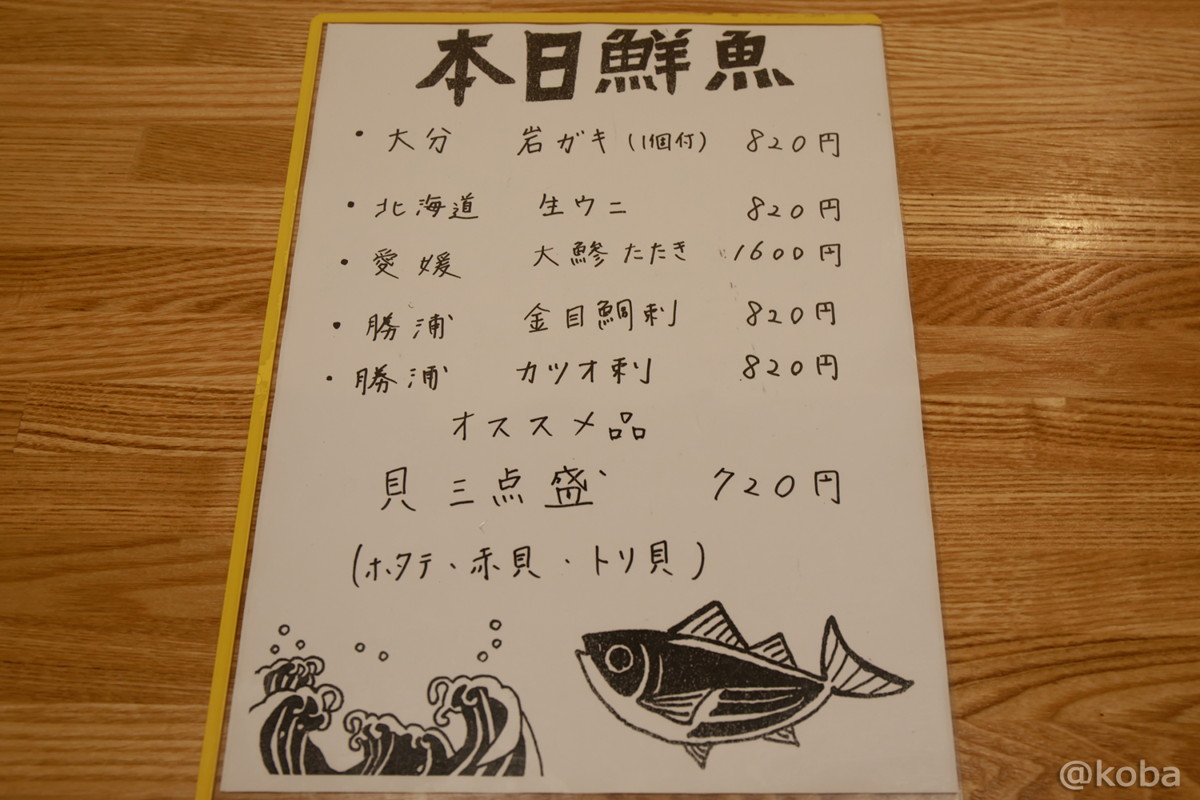 本日鮮魚
・大分 岩ガキ(1個付) 820円
・北海道 生ウニ 820円
・愛媛 大鰺たたき 1600円
・勝浦 金目鯛刺 820円
・勝浦 カツオ刺 820円
オススメ品
貝三点盛 720円
(ホタテ、赤貝・トリ貝)
@koba